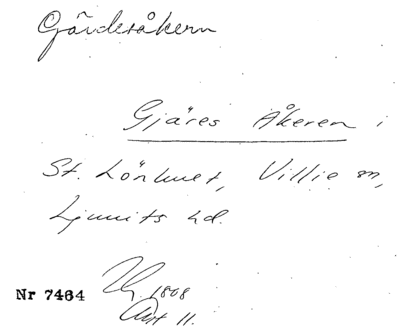 Gärdesåkern
Gjäres Åkeren i
St. Lönhult, Villie sn,
Ljunits hd.
Nr 7464 1808
Akt 11.